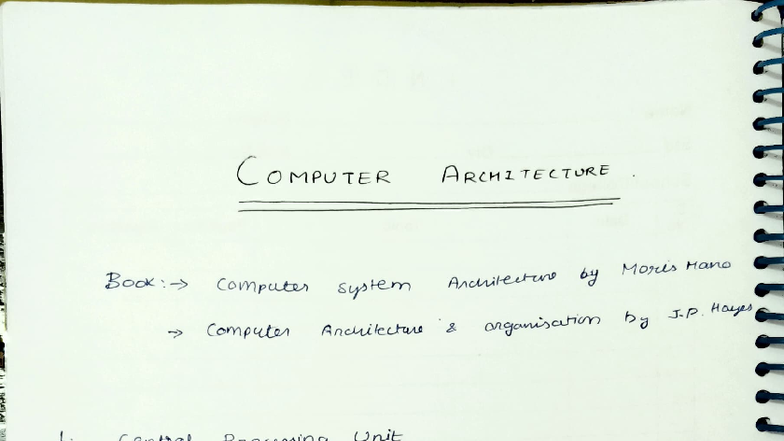 COMPUTER ARCHITECTURE.
Book:→ Computer system Architecture by Moris Mano
→ Computer Architecture & organisation by J.P. Hayes
1. Central Processing Unit